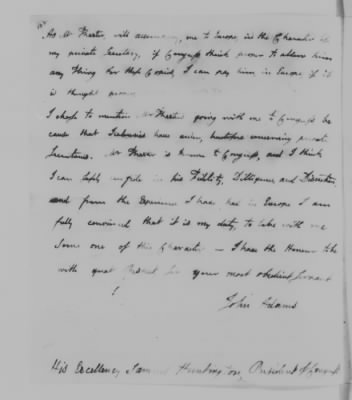 As Mr Thaxter, will accompany, me to Europe in the Character of
my private Secretary, if Congress think proper to allow him
any Thing for this Service, I can pay him in Europe if it
is thought proper.
I chose to mention Mr Thaxter going with me to Congress be
cause that Jealousies have arisen, heretofore concerning private
Secretaries. Mr Thaxter is known to Congress, and I think
I can safely confide in his Fidelity, Dilligence and Discretion,
and from the Experience I have had in Europe I am
fully convinced that it is my duty, to take with me
Some one of this Character — I have the Honour to be
with great Respect Sir your most obedient servant
John Adams
His Excellency Samuel Huntington, President of Congress